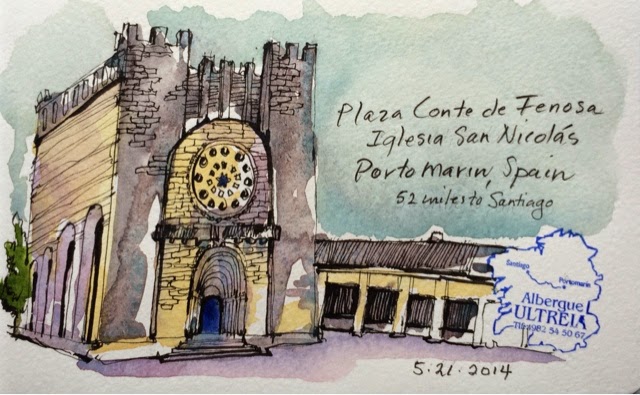 Plaza Conte de Fenosa
Iglesia San Nicolás
Portomarin, Spain
52 miles to Santiago
Santiago
Portomarin
Albergue
ULTREIA
Tlf: 982 54 50 67
5.21.2014